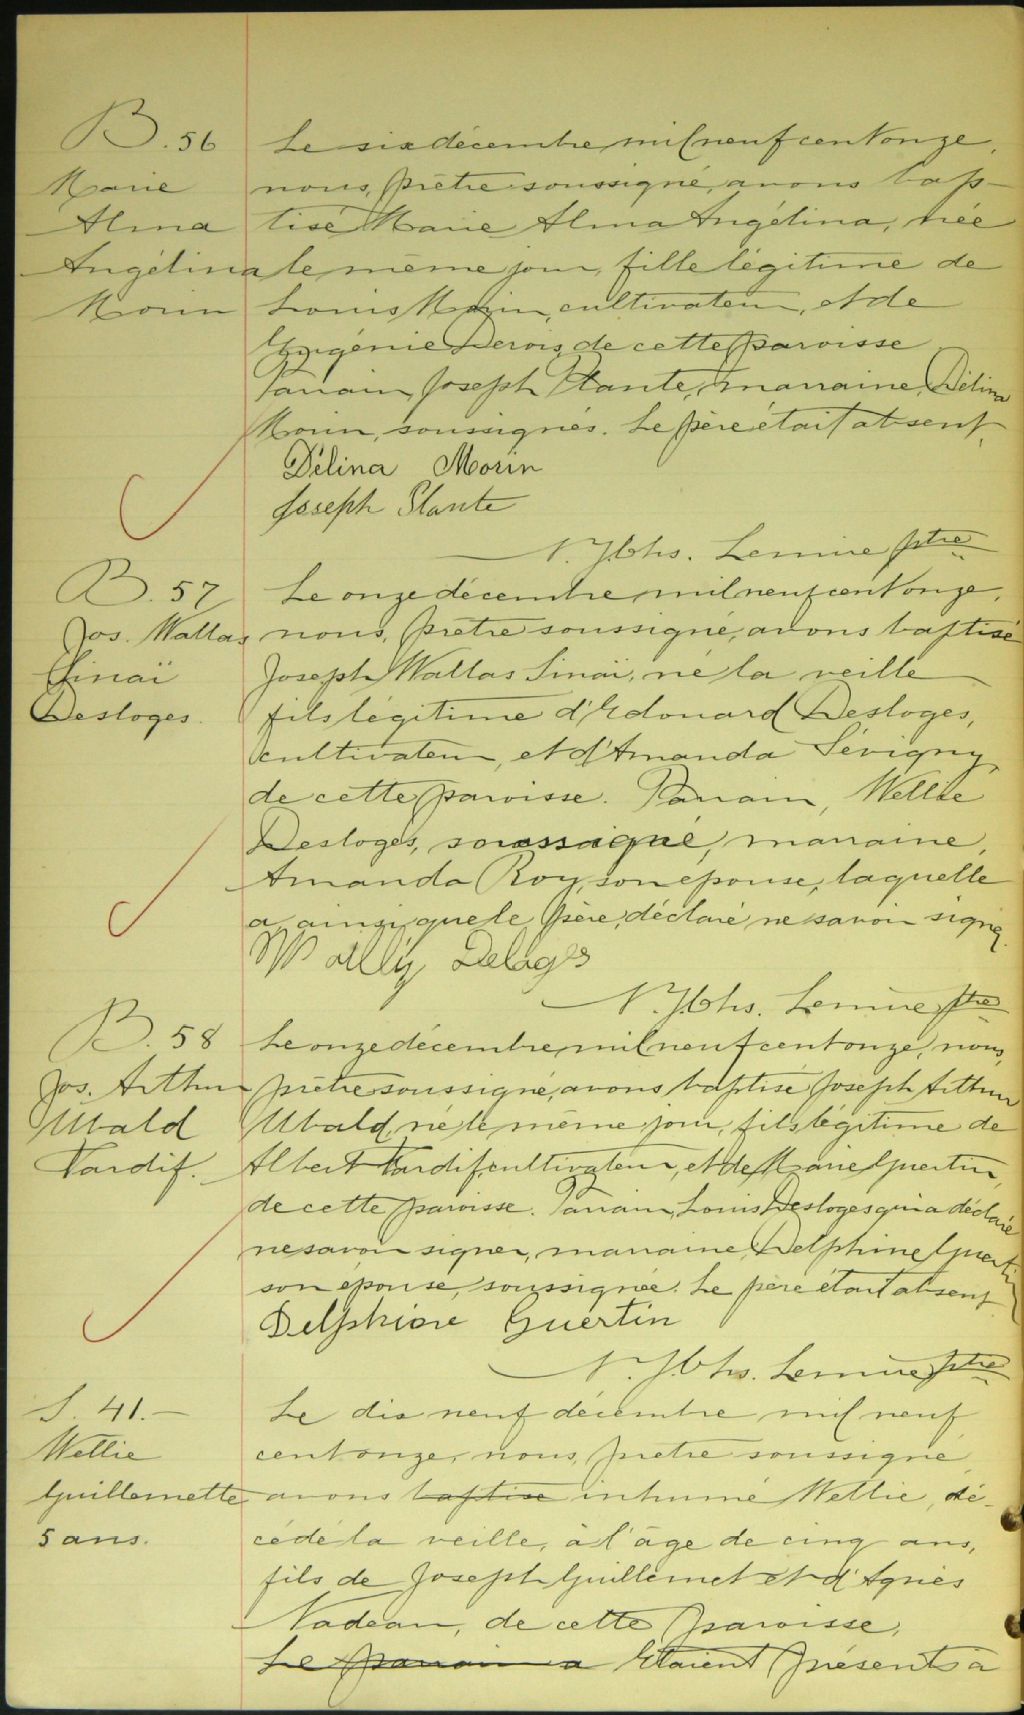 B. 56
Marie
Alma
Angélina
Morin
Le six décembre mil neuf cent onze,
nous, prêtre soussigné, avons bap-
tisé Marie Alma Angélina, née
le même jour, fille légitime de
Louis Morin, cultivateur, et de
Eugénie Derois, de cette paroisse
Parrain, Joseph Plante, marraine, Délina
Morin, soussignés. Le père était absent.
Délina Morin
Joseph Plante
N. J. Chs. Lemire ptre
B. 57
Jos. Wallas
Sinaï
Desloges.
Le onze décembre mil neuf cent onze,
nous, prêtre soussigné, avons baptisé
Joseph Wallas Sinaï, né la veille
fils légitime d'Edouard Desloges,
cultivateur, et d'Amanda Sévigny,
de cette paroisse. Parrain, Wellie
Desloges, soussigné, marraine,
Amanda Roy, son epouse, laquelle
a, ainsi que le père, déclaré ne savoir signer.
Willy Deloges
N. J. Chs. Lemire ptre
B. 58
Jos. Arthur
Ubald
Tardif.
Le onze décembre mil neuf cent onze, nous,
prêtre soussigné, avons baptisé Joseph Arthur
Ubald, né le même jour, fils légitime de
Albert Tardif, cultivateur, et de Marie Guertin,
de cette paroisse. Parrain, Louis Desloges qui a déclaré
ne savoir signer, marraine, Delphine Guertin
son épouse, soussignée. Le père était absent
Delphine Guertin
N. J. Chs. Lemire ptre
S. 41. —
Wellie
Guillemette
5 ans.
Le dix neuf décembre mil neuf
cent onze, nous, prêtre soussigné
avons baptisé inhumé Wellie, dé-
cédé la veille, à l'âge de cinq ans,
fils de Joseph Guillemet et d'Agnès
Nadeau, de cette paroisse,
Le parrain a Etaient présents à